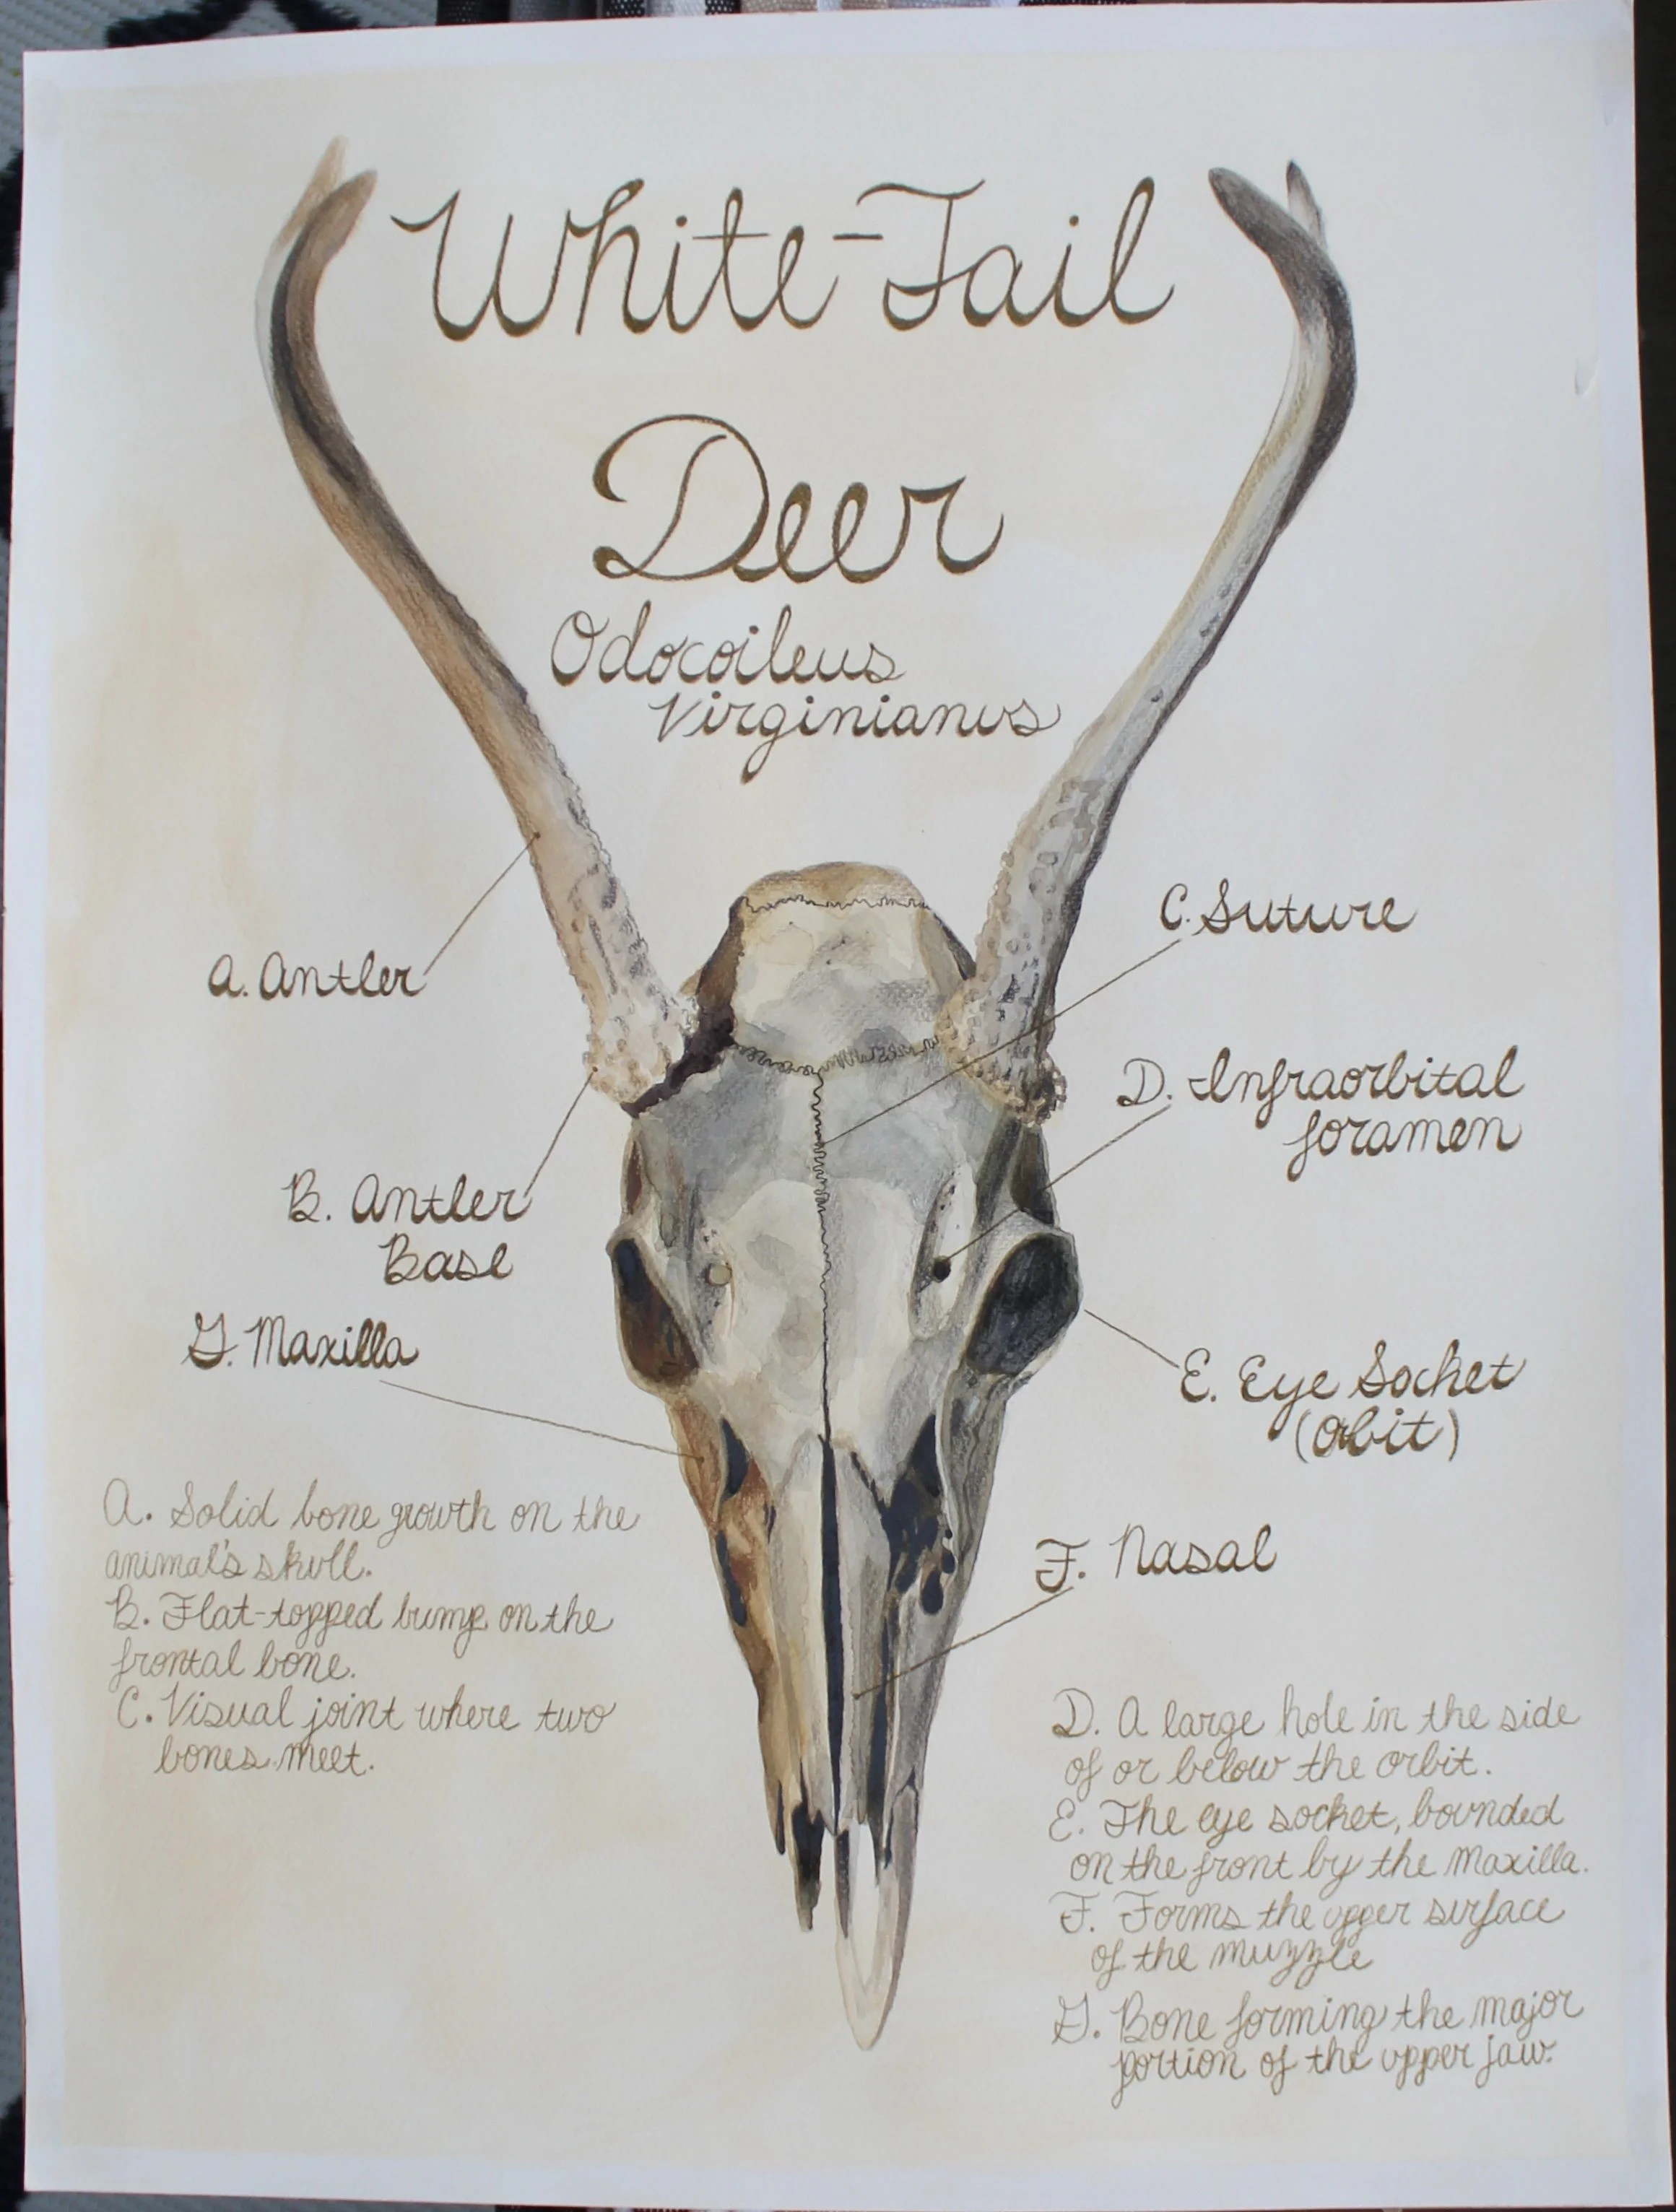 White-Tail
Deer
Odocoileus
Virginianus
A. Antler
B. Antler
Base
G. Maxilla
C. Suture
D. Infraorbital
foramen
E. Eye Socket
(Orbit)
F. Nasal
A. Solid bone growth on the
animal's skull.
B. Flat-topped bump on the
frontal bone.
C. Visual joint where two
bones meet.
D. A large hole in the side
of or below the orbit.
E. The eye socket, bounded
on the front by the maxilla.
F. Forms the upper surface
of the muzzle
G. Bone forming the major
portion of the upper jaw.